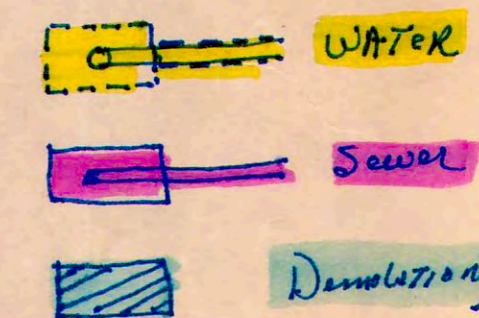 WATER
Sewer
Demolition